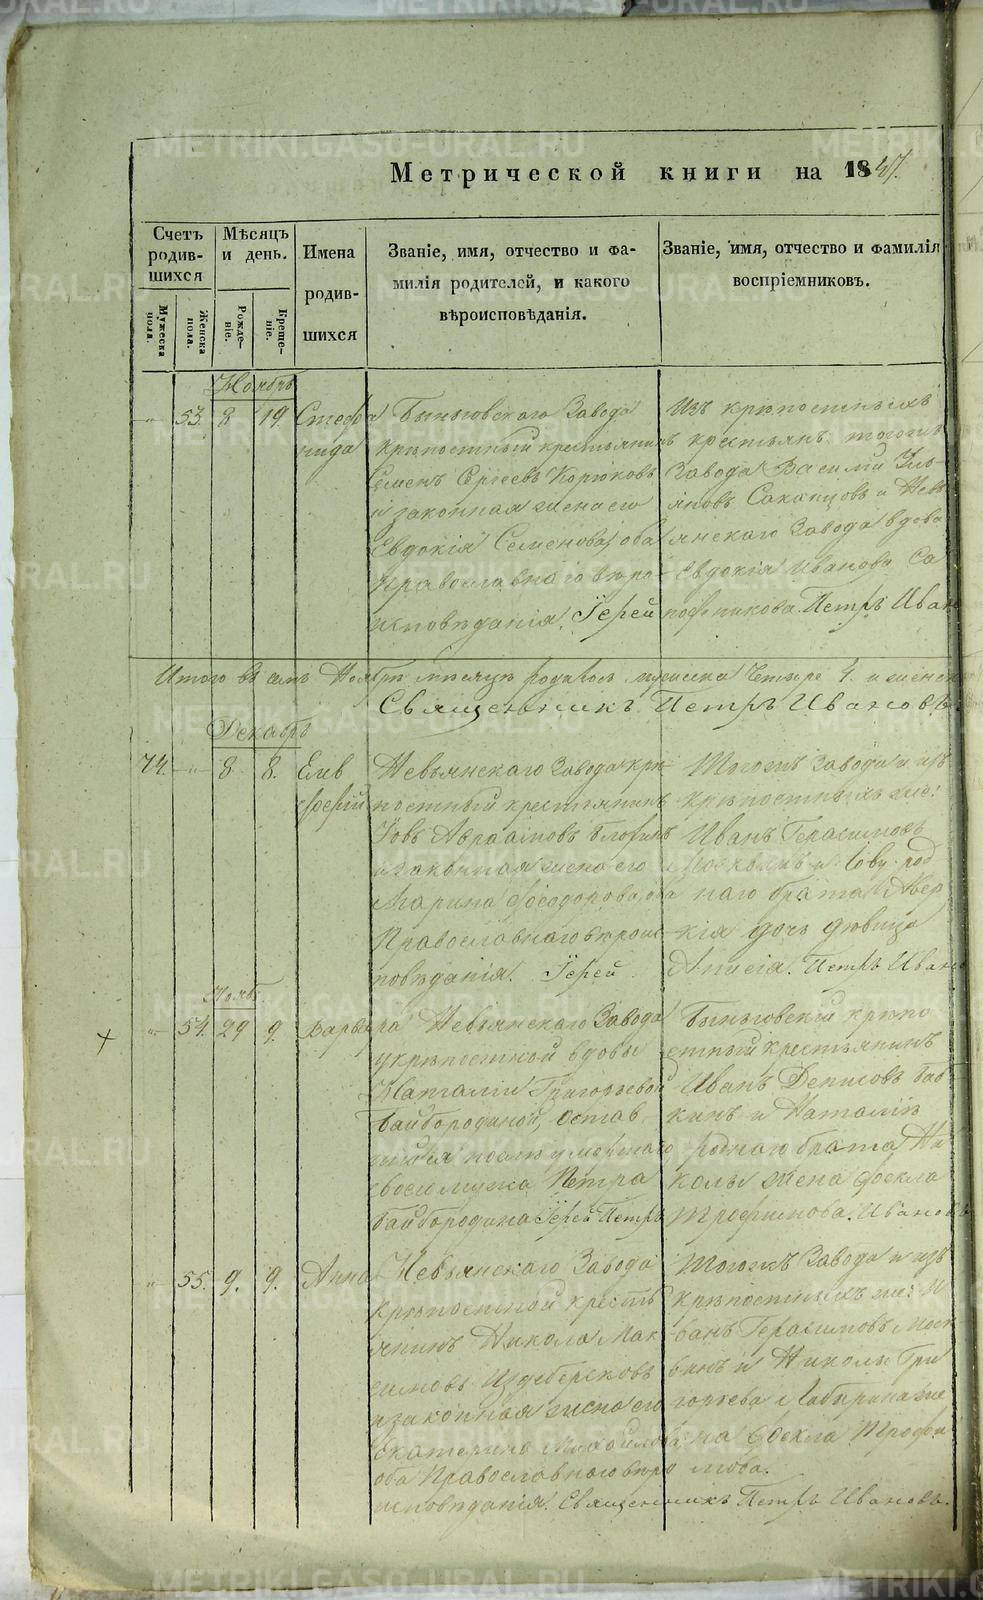 Метрической книги на 1847.
Счетъ родив-шихся
Мѣсяцъ и день.
Имена родив-шихся
Званіе, имя, отчество и фа-
милія родителей, и какого
вѣроисповѣданія.
Званіе, имя, отчество и фамилія
воспріемниковъ.
Мужеска пола.
Женска пола.
Рожде-ніе.
Креще-ніе.
Ноябрь
53. 8 19. Стефа
нида
Быньговскаго Завода
крѣпостный крестьянинъ
Семенъ Сергеевъ Корюковъ
и законная жена его
Евдокія Семенова, оба
православнаго вѣро-
исповѣданія. Іерей
Изъ крѣпостныхъ
крестьянъ тогожъ
Завода Василий Уль-
яновъ и Невь
янскаго Завода вдова
Евдокія Иванова Са
пожникова. Петръ Иван
Итого въ семъ Ноябрѣ мѣсяцѣ родилось мужска Четыре 4. и женск
Священникъ Петръ Ивановъ
Декабрь
74. 8 8. Елев
ферій
Невьянскаго Завода крѣ
постный крестьянинъ
Іовъ Авраамовъ
и законная жена его
Марина Феодорова, оба
Православнаго вѣроис-
повѣданія. Іерей
Тогожъ Завода и изъ
крѣпостныхъ же:
Иванъ Герасимовъ
Москвинъ и Іову род
наго брата Авер
кія дочь дѣвица
Анисія. Петръ Иван
Нояб.
54. 29 9. Варвара
Невьянскаго Завода
у крѣпостной вдовы
Наталіи Григорьевой
Байбородиной, остав
шійся послѣ умершаго
своего мужа Петра
Байбородина Іерей Петръ
Быньговскій крѣпо
стный крестьянинъ
Иванъ Денисовъ Баб
кинъ и Наталіи
роднаго брата Ни
колы жена Фекла
Трофимова. Ивановъ
55. 9. 9. Анна
Невьянскаго Завода
крѣпостной кресть
янинъ Никола Мак
симовъ
и законная жена его
Екатерина Михайлова,
оба Православнаго вѣро
исповѣданія. Священникъ Петръ Ивановъ.
Тогожъ Завода и изъ
крѣпостныхъ же: И
ванъ Герасимовъ Моск
винъ и Николы Гри
горьева же
на Фекла Трофи
мова.